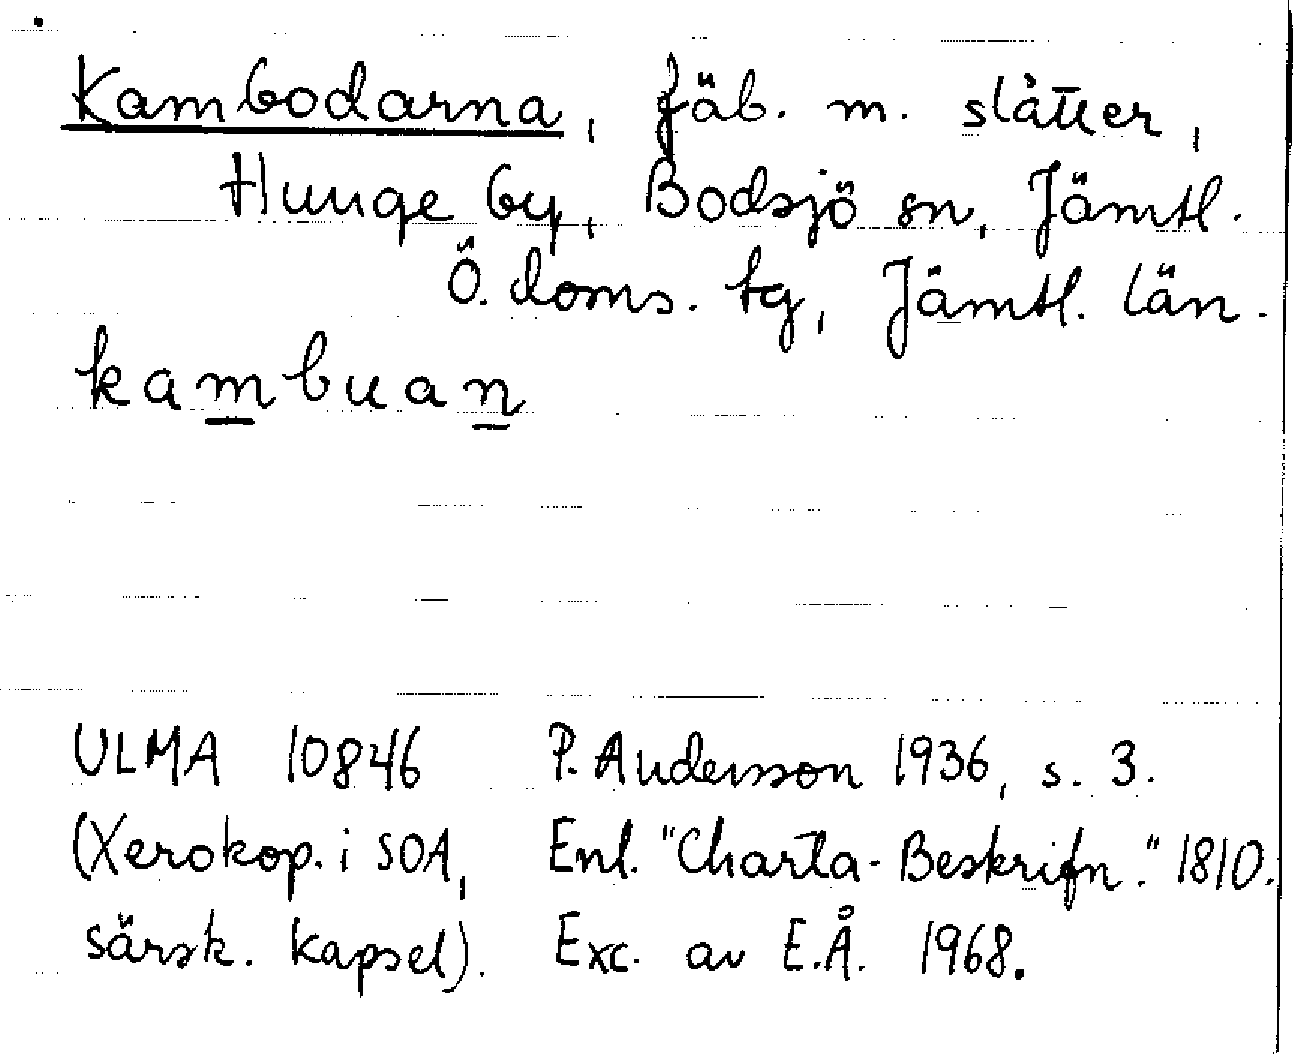 Kambodarna, fäb. m. slåtter,
Hunge by, Bodsjö sn, Jämtl.
Ö. doms. tg, Jämtl. län.
kambuan
ULMA 10846 P. Andersson 1936, s. 3.
(Xerokop. i SOA, Enl. "Charta-Beskrifn." 1810.
särsk. kapsel). Exc. av E.Å. 1968.